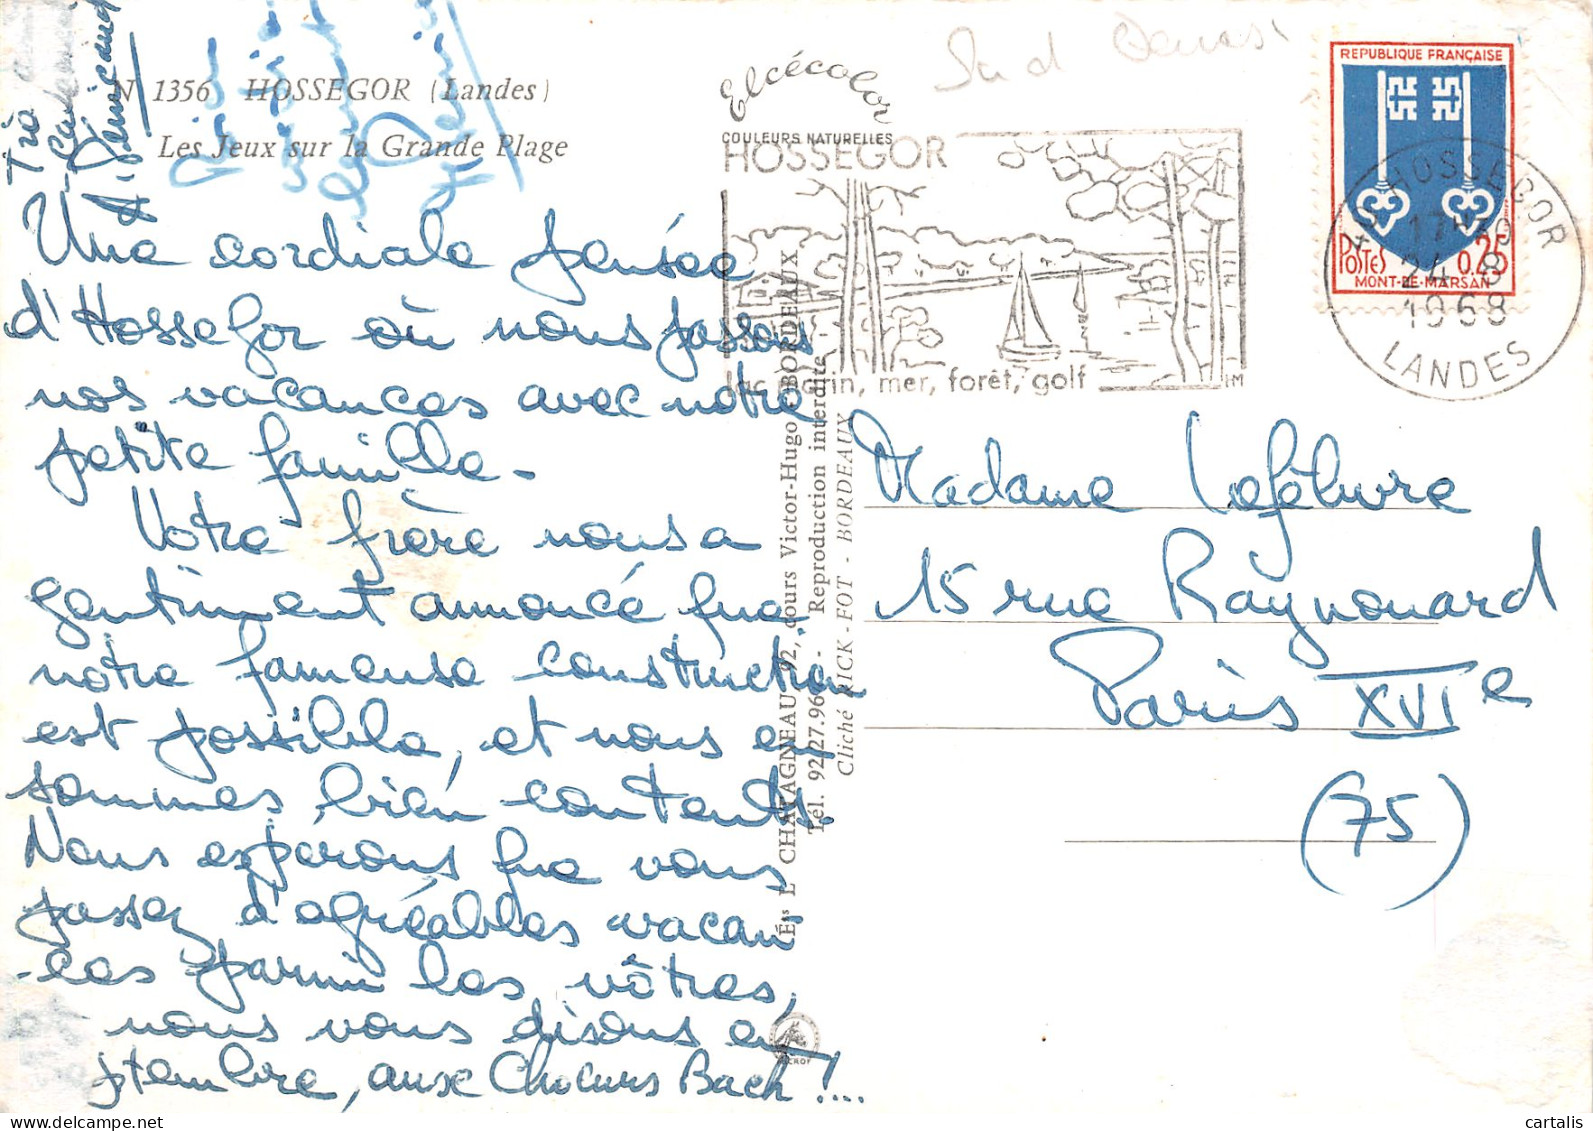 N 1356 HOSSEGOR (Landes)
Les Jeux sur la Grande Plage
Elcécolor
COULEURS NATURELLES
HOSSEGOR
mer, forêt, golf
REPUBLIQUE FRANÇAISE
POSTES 0,25
MONT-DE-MARSAN
HOSSEGOR
24-8
1968
LANDES
Une cordiale pensée
d'Hossegor où nous passons
nos vacances avec notre
petite famille -
Votre frère nous a
gentiment annoncé que
notre fameuse construction
est possible, et nous en
sommes bien contents.
Nous espérons que vous
passez d'agréables vacan
-ces parmi les vôtres,
nous vous disons en
ptembre, aux Choeurs Bach !....
Très
Ets L CHATAGNEAU, 92, cours Victor-Hugo - BORDEAUX
Tél. 92.27.96 - Reproduction interdite
Cliché RICK-FOT - BORDEAUX
Madame Lefébvre
15 rue Raynouard
Paris XVIe
(75)
cartalis